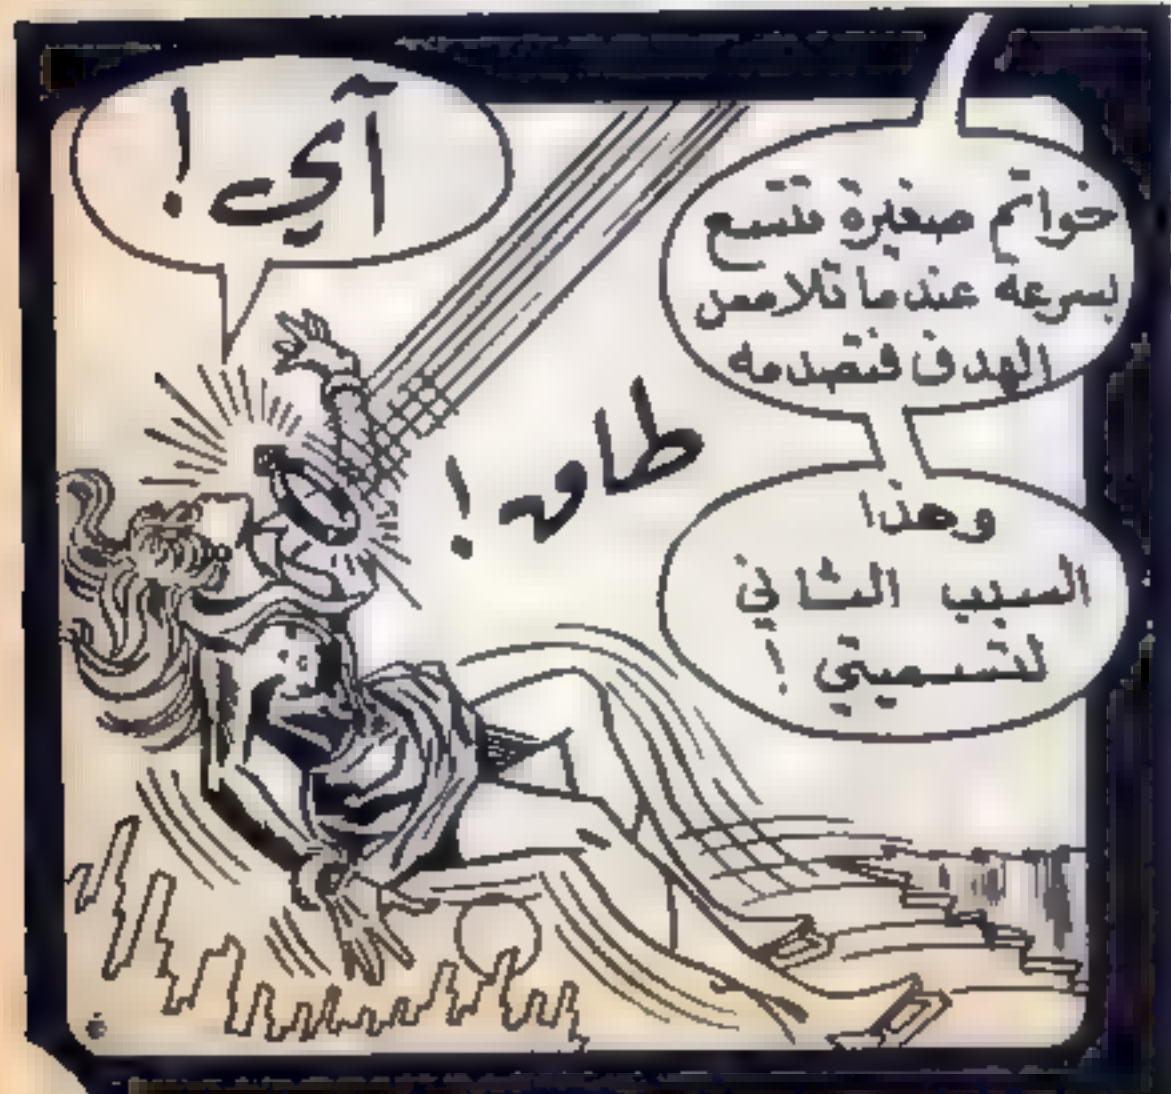 خواتم صغيرة تتسع
بسرعه عندما تلامس
الهدف فتصدمه
وهذا
السبب الثاني
لتسميتي !
آي !
طاق !